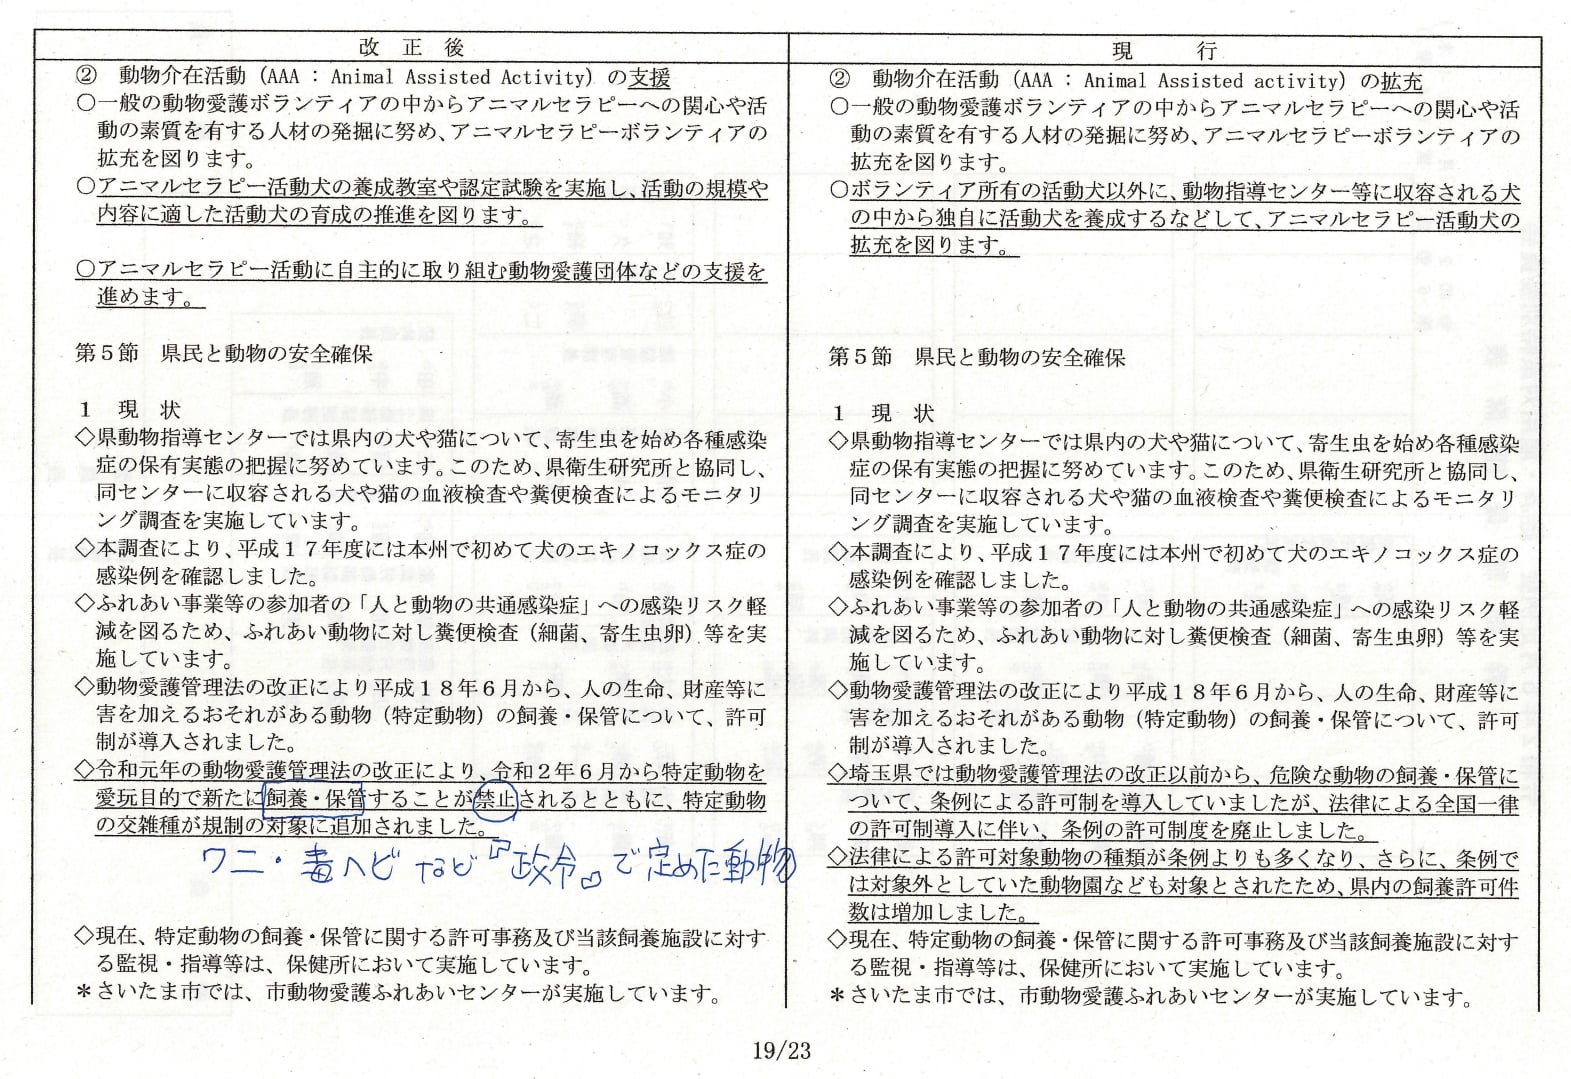 改 正 後
② 動物介在活動（AAA : Animal Assisted Activity）の支援
○一般の動物愛護ボランティアの中からアニマルセラピーへの関心や活
動の素質を有する人材の発掘に努め、アニマルセラピーボランティアの
拡充を図ります。
○アニマルセラピー活動犬の養成教室や認定試験を実施し、活動の規模や
内容に適した活動犬の育成の推進を図ります。
○アニマルセラピー活動に自主的に取り組む動物愛護団体などの支援を
進めます。
第５節 県民と動物の安全確保
１ 現 状
◇県動物指導センターでは県内の犬や猫について、寄生虫を始め各種感染
症の保有実態の把握に努めています。このため、県衛生研究所と協同し、
同センターに収容される犬や猫の血液検査や糞便検査によるモニタリ
ング調査を実施しています。
◇本調査により、平成１７年度には本州で初めて犬のエキノコックス症の
感染例を確認しました。
◇ふれあい事業等の参加者の「人と動物の共通感染症」への感染リスク軽
減を図るため、ふれあい動物に対し糞便検査（細菌、寄生虫卵）等を実
施しています。
◇動物愛護管理法の改正により平成１８年６月から、人の生命、財産等に
害を加えるおそれがある動物（特定動物）の飼養・保管について、許可
制が導入されました。
◇令和元年の動物愛護管理法の改正により、令和２年６月から特定動物を
愛玩目的で新たに飼養・保管することが禁止されるとともに、特定動物
の交雑種が規制の対象に追加されました。
ワニ・毒ヘビなど『政令』で定めた動物
◇現在、特定動物の飼養・保管に関する許可事務及び当該飼養施設に対す
る監視・指導等は、保健所において実施しています。
＊さいたま市では、市動物愛護ふれあいセンターが実施しています。
現 行
② 動物介在活動（AAA : Animal Assisted activity）の拡充
○一般の動物愛護ボランティアの中からアニマルセラピーへの関心や活
動の素質を有する人材の発掘に努め、アニマルセラピーボランティアの
拡充を図ります。
○ボランティア所有の活動犬以外に、動物指導センター等に収容される犬
の中から独自に活動犬を養成するなどして、アニマルセラピー活動犬の
拡充を図ります。
第５節 県民と動物の安全確保
１ 現 状
◇県動物指導センターでは県内の犬や猫について、寄生虫を始め各種感染
症の保有実態の把握に努めています。このため、県衛生研究所と協同し、
同センターに収容される犬や猫の血液検査や糞便検査によるモニタリ
ング調査を実施しています。
◇本調査により、平成１７年度には本州で初めて犬のエキノコックス症の
感染例を確認しました。
◇ふれあい事業等の参加者の「人と動物の共通感染症」への感染リスク軽
減を図るため、ふれあい動物に対し糞便検査（細菌、寄生虫卵）等を実
施しています。
◇動物愛護管理法の改正により平成１８年６月から、人の生命、財産等に
害を加えるおそれがある動物（特定動物）の飼養・保管について、許可
制が導入されました。
◇埼玉県では動物愛護管理法の改正以前から、危険な動物の飼養・保管に
ついて、条例による許可制を導入していましたが、法律による全国一律
の許可制導入に伴い、条例の許可制度を廃止しました。
◇法律による許可対象動物の種類が条例よりも多くなり、さらに、条例で
は対象外としていた動物園なども対象とされたため、県内の飼養許可件
数は増加しました。
◇現在、特定動物の飼養・保管に関する許可事務及び当該飼養施設に対す
る監視・指導等は、保健所において実施しています。
＊さいたま市では、市動物愛護ふれあいセンターが実施しています。
19/23